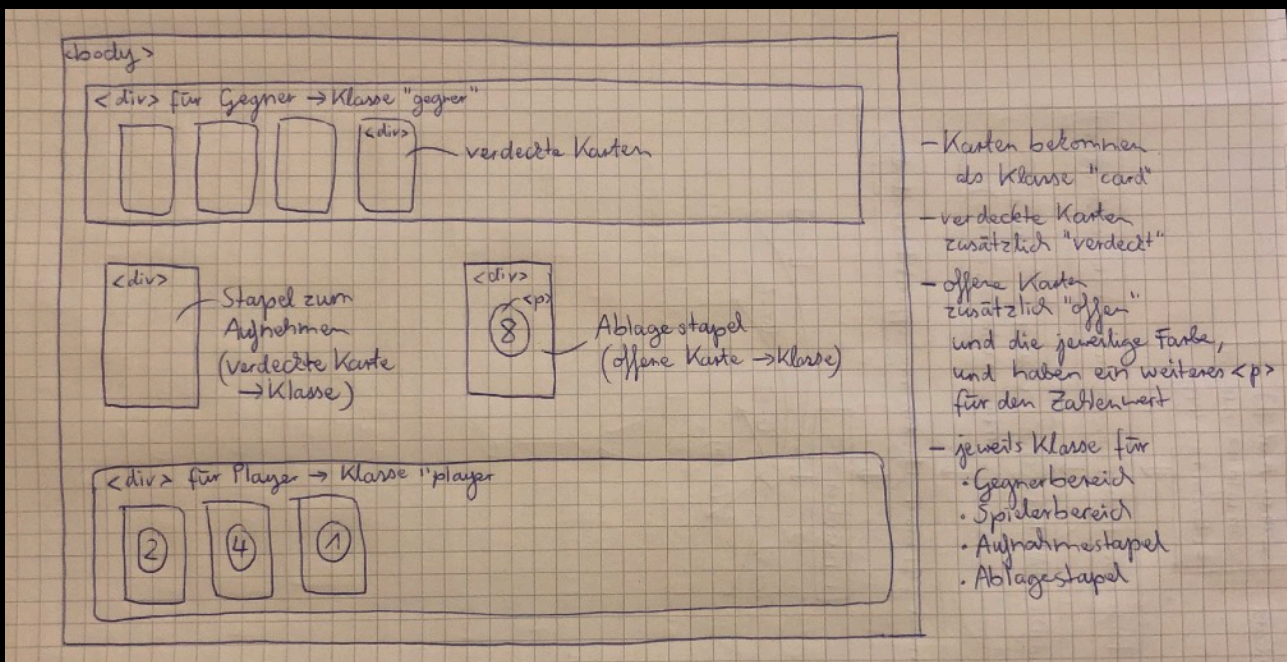 <body>
<div> für Gegner → Klasse "gegner"
<div>
verdeckte Karten
<div>
Stapel zum
Aufnehmen
(verdeckte Karte
→ Klasse)
<div>
<p>
8
Ablagestapel
(offene Karte → Klasse)
<div> für Player → Klasse "player
2 4 1
- Karten bekommen
als Klasse "card"
- verdeckte Karten
zusätzlich "verdeckt"
- offene Karten
zusätzlich "offen"
und die jeweilige Farbe,
und haben ein weiteres <p>
für den Zahlenwert
- jeweils Klasse für
· Gegnerbereich
· Spielerbereich
· Aufnahmestapel
· Ablagestapel